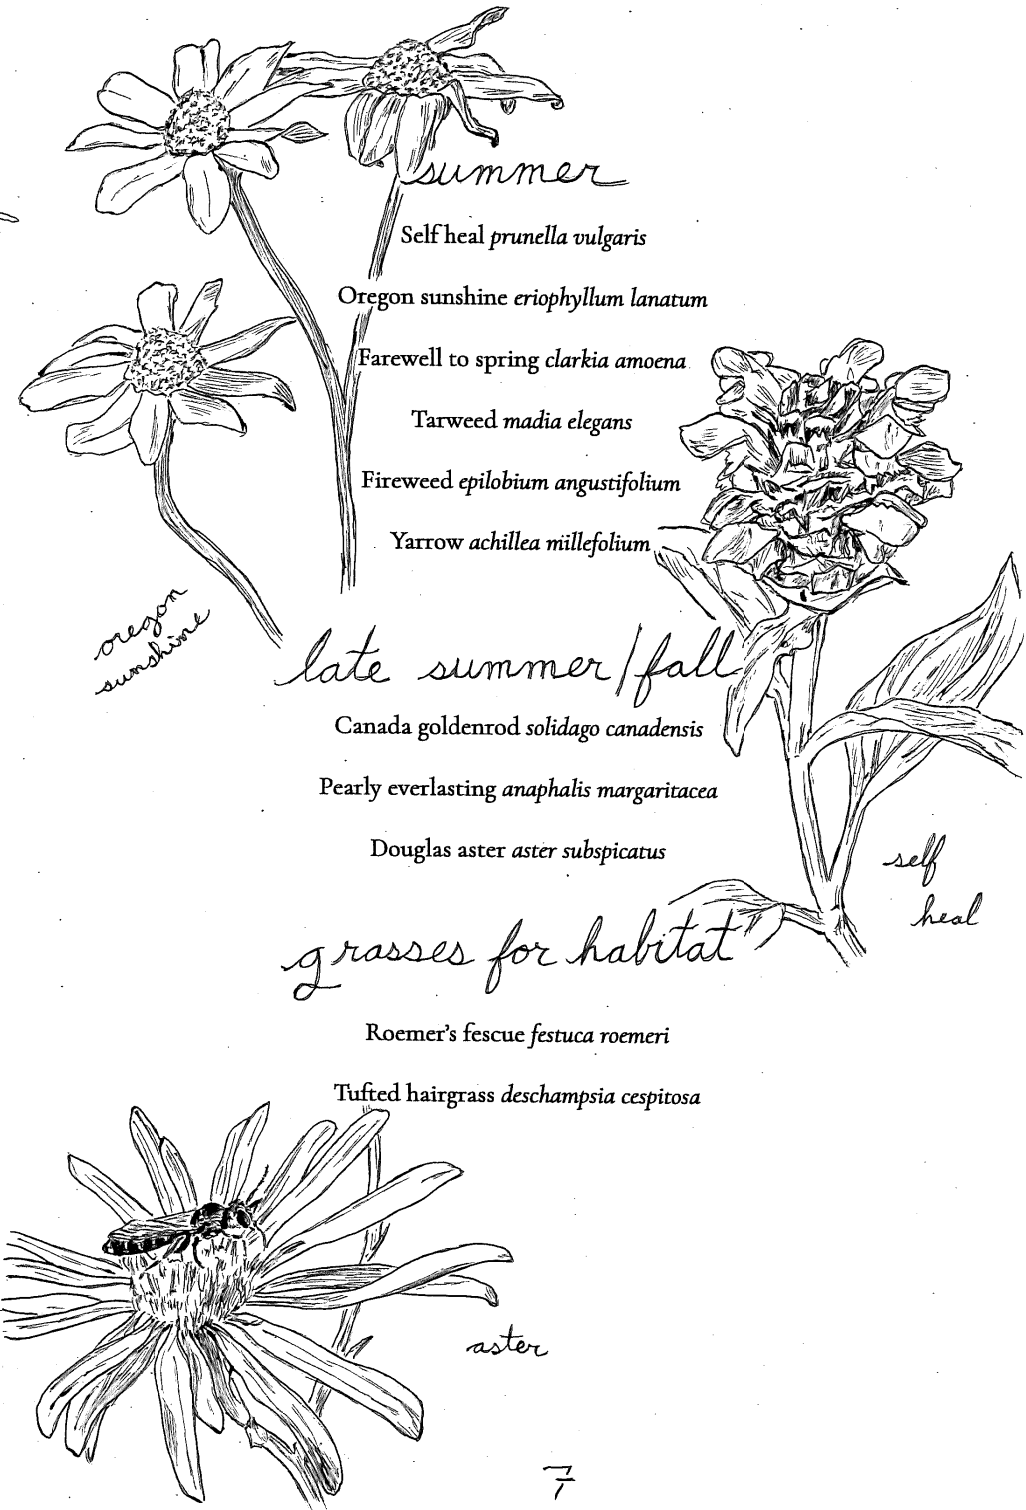 summer
Self heal prunella vulgaris
Oregon sunshine eriophyllum lanatum
Farewell to spring clarkia amoena
Tarweed madia elegans
Fireweed epilobium angustifolium
Yarrow achillea millefolium
oregon
sunshine
late summer/fall
Canada goldenrod solidago canadensis
Pearly everlasting anaphalis margaritacea
Douglas aster aster subspicatus
self
heal
grasses for habitat
Roemer's fescue festuca roemeri
Tufted hairgrass deschampsia cespitosa
aster
7